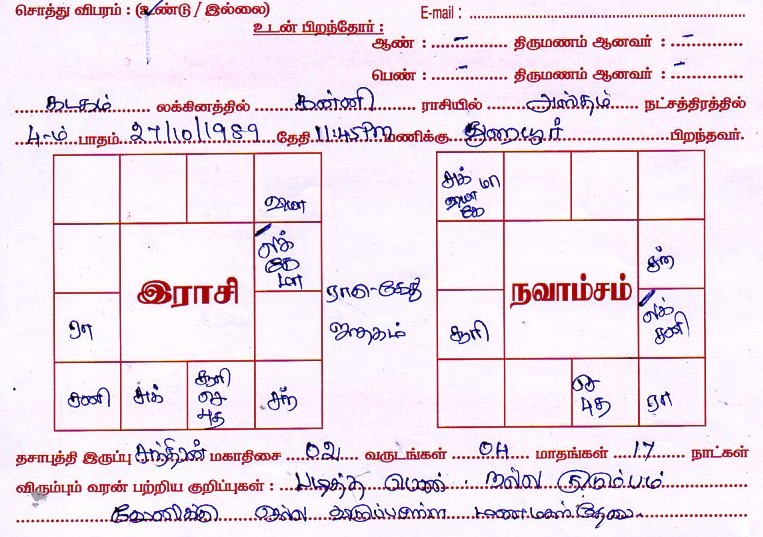 சொத்து விபரம் : (உண்டு / இல்லை) E-mail :
உடன் பிறந்தோர் :
ஆண் : – திருமணம் ஆனவர் : –
பெண் : – திருமணம் ஆனவர் : –
கடகம் லக்கினத்தில் கன்னி ராசியில் அஸ்தம் நட்சத்திரத்தில்
4-ம் பாதம் 27/10/1989 தேதி 11:45 PM மணிக்கு துறையூர் பிறந்தவர்.
சுக் மா
லக்
குரு
இராசி
நவாம்சம்
ராகு-கேது
ஜாதகம்
ரா
சனி
சுக்
சூரி
செ
புத
சந்
சூரி
லக்
சனி
செ
புத
ரா
தசாபுத்தி இருப்பு சந்திரன் மகாதிசை 02 வருடங்கள் 04 மாதங்கள் 17 நாட்கள்
விரும்பும் வரன் பற்றிய குறிப்புகள் : படித்த பெண். நல்ல குடும்பம்
நல்ல மணமகள் தேவை.